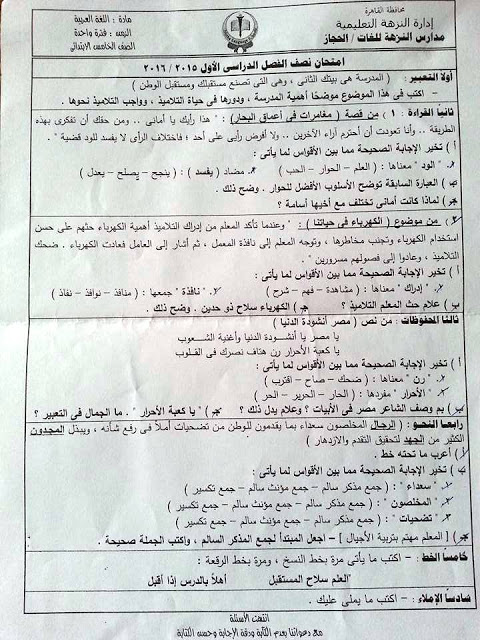 محافظة القاهرة
إدارة النزهة التعليمية
مدارس النزهة للغات / الحجاز
مادة : اللغة العربية
الزمن : فترة واحدة
الصف الخامس الابتدائي
امتحان نصف الفصل الدراسى الأول ٢٠١٥ / ٢٠١٦
أولاً التعبير : ( المدرسة هى بيتك الثانى ، وهى التى تصنع مستقبلك ومستقبل الوطن )
- اكتب فى هذا الموضوع موضحًا أهمية المدرسة ، ودورها فى حياة التلاميذ ، وواجب التلاميذ نحوها .
ثانياً القراءة : ١ ) من قصة ( مغامرات فى أعماق البحار ) : " هذا رأيك يا أمانى .. ومن حقك أن تفكرى بهذه
الطريقة .. وأنا تعودت أن أحترم آراء الآخرين .. ولا أفرض رأيى على أحد ؛ فاختلاف الرأى لا يفسد للود قضية " .
أ ) تخير الإجابة الصحيحة مما بين الأقواس لما يأتى :
- " الود " معناها : ( العلم - الحوار - الحب ) . - مضاد ( يفسد ) : ( ينجح - يصلح - يعدل )
ب) العبارة السابقة توضح الأسلوب الأفضل للحوار . وضح ذلك .
جـ) لماذا كانت أمانى تختلف مع أخيها أسامة ؟
٢ ) من موضوع ( الكهرباء فى حياتنا ) : " وعندما تأكد المعلم من إدراك التلاميذ أهمية الكهرباء حثهم على حسن
استخدام الكهرباء وتجنب مخاطرها ، وتوجه المعلم إلى نافذة المعمل ، ثم أشار إلى العامل فعادت الكهرباء . ضحك
التلاميذ ، وعادوا إلى فصولهم مسرورين " .
أ ) تخير الإجابة الصحيحة مما بين الأقواس لما يأتى :
- " إدراك " معناها : ( مشاهدة - فهم - شرح ) . - " نافذة " جمعها : ( منافذ - نوافذ - نفاذ )
ب ) علام حث المعلم التلاميذ ؟ جـ ) الكهرباء سلاح ذو حدين . وضح ذلك .
ثالثا المحفوظات : من نص ( مصر أنشودة الدنيا )
يا مصر يا أنشودة الدنيا وأغنية الشعوب
يا كعبة الأحرار رن هتاف نصرك فى القلوب
أ ) تخير الإجابة الصحيحة مما بين الأقواس لما يأتى :
- " رن " معناها : ( ضحك - صاح - اقترب )
- " الأحرار " مفردها : ( الحار - الحرير - الحر )
ب) بم وصف الشاعر مصر فى الأبيات ؟ وعلام يدل ذلك ؟ جـ) " يا كعبة الأحرار " . ما الجمال فى التعبير ؟
رابعا النحو : ( الرجال المخلصون سعداء بما يقدمون للوطن من تضحيات أملاً فى رفع شأنه ، ويبذل المجدون
الكثير من الجهد لتحقيق التقدم والازدهار )
أ ) أعرب ما تحته خط .
ب ) تخير الإجابة الصحيحة مما بين الأقواس لما يأتى :
- " سعداء " : ( جمع مذكر سالم - جمع مؤنث سالم - جمع تكسير )
- " المخلصون " : ( جمع مذكر سالم - جمع مؤنث سالم - جمع تكسير )
- " تضحيات " : ( جمع مذكر سالم - جمع مؤنث سالم - جمع تكسير )
جـ) ( المعلم مهتم بتربية الأجيال ) - اجعل المبتدأ لجمع المذكر السالم ، واكتب الجملة صحيحة .
خامساً الخط : - اكتب ما يأتى مرة بخط النسخ ، ومرة بخط الرقعة :
" العلم سلاح المستقبل أهلاً بالدرس إذا أقبل
سادسا الإملاء : - اكتب ما يملى عليك .
انتهت الأسئلة